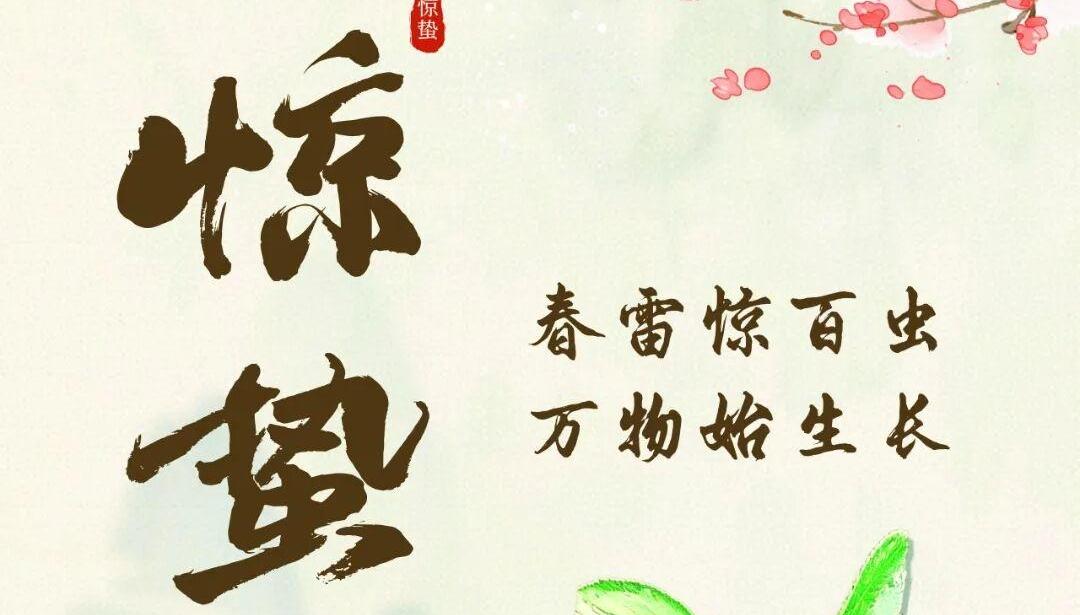 惊蛰
惊蛰
春雷惊百虫
万物始生长